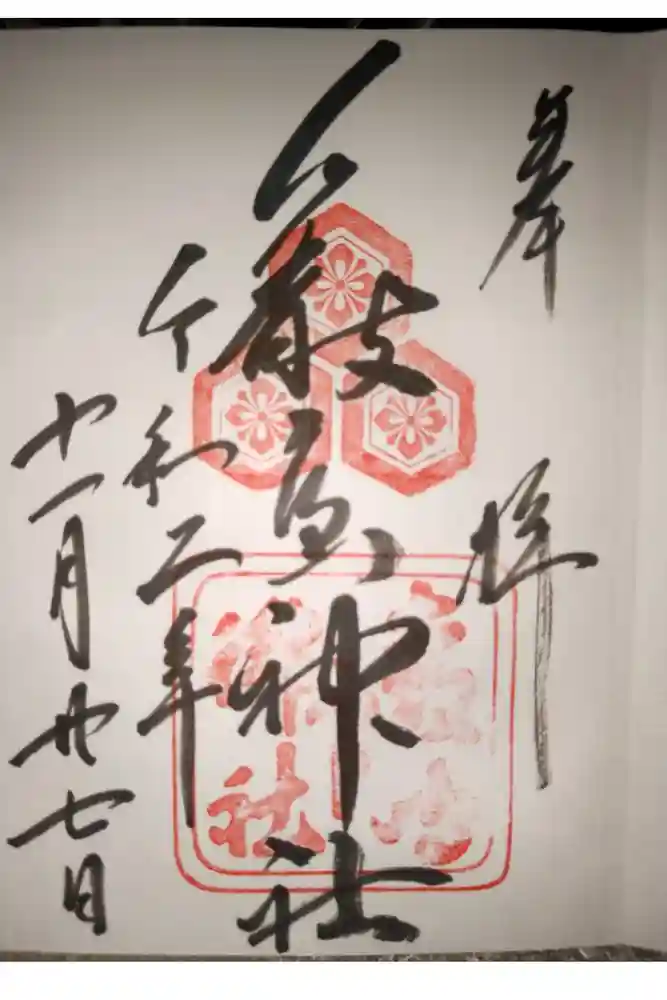 奉拝
厳島神社
令和二年
十一月廿七日
厳島
神社